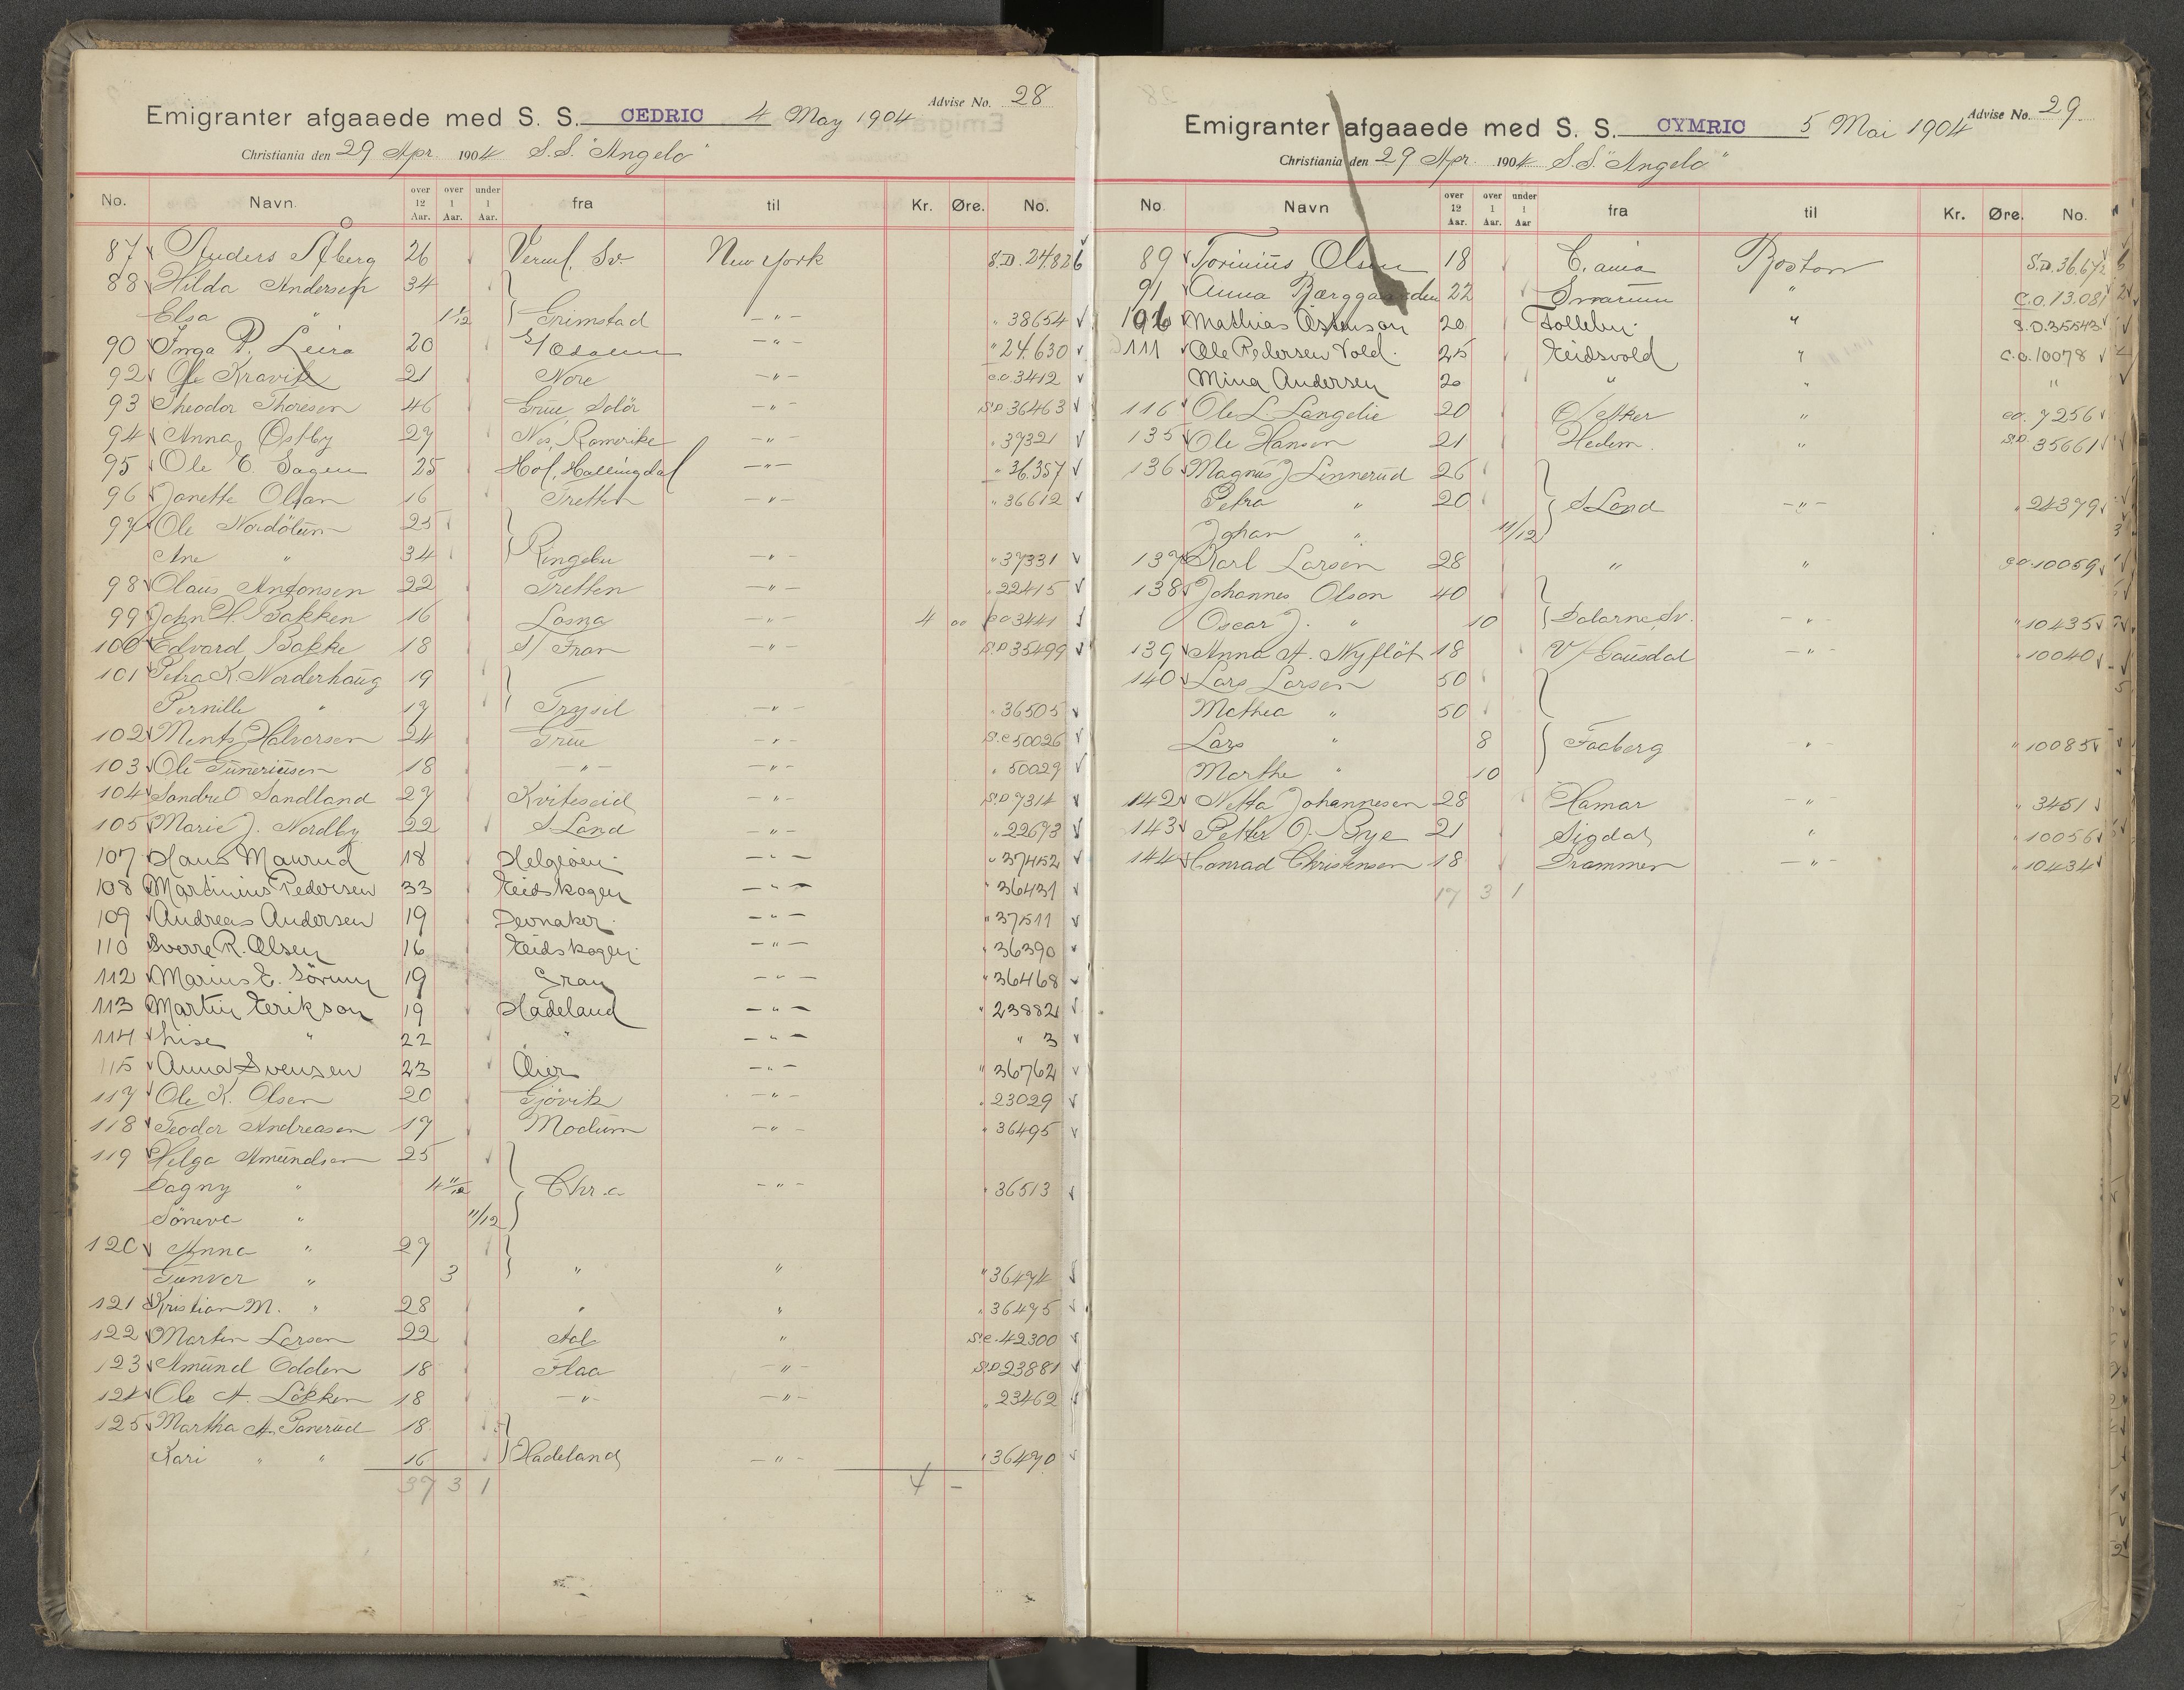 Advise No. 28
Emigranter afgaaede med S. S. CEDRIC 4 May 1904
Christiania den 29 Apr. 1904 S.S. "Angelo"
No. Navn. over 12 Aar. over 1 Aar. under 1 Aar. fra til Kr. Øre. No.
87 Anders Åberg 26 Verml. Sv. New York S.D. 24.826
88 Hilda Andersen 34
Elsa " 1 1/12 Grimstad -"- " 38654
90 Inga P. Leira 20 -"- " 24.630
92 Ole Kravik 21 Nore -"- c.o. 3412
93 Theodor Thoresen 46 Grue, Solör -"- S.D. 36463
94 Anna Östby 27 Nes, Romerike -"- " 37321
95 Ole E. Sagen 25 Hol, Hallingdal -"- " 36.357
96 Janette Olsan 16 Tretten -"- " 36612
97 Ole Nordötum 25
Ane " 34 Ringebu -"- " 37331
98 Olaus Antonsen 22 Tretten -"- " 22415
99 John H. Bakken 16 Losna -"- 4 00 co 3441
100 Edvard Bakke 18 S/ Fron -"- S.D 35499
101 Petra K. Norderhaug 19
Pernille " 17 Trysil -"- " 36505
102 Ments Halvorsen 24 Grue -"- S.C 50026
103 Ole Guneriusen 18 -"- -"- " 50029
104 Sondre O Sandland 27 Kviteseid -"- S.D 7314
105 Marie J. Nordby 22 S Land -"- " 22673
107 Hans Maurud 18 Helgöen -"- " 37452
108 Martinius Pedersen 33 Eidskogen -"- " 36431
109 Andreas Andersen 19 Jevnaker -"- " 37511
110 Sverre R. Olsen 16 Eidskogen -"- " 36390
112 Marius E. 19 Gran -"- " 36468
113 Martin Erikson 19 Hadeland -"- " 23882
114 Lise " 22 " -"- " 3
115 Anna Svensen 23 Öier -"- " 36762
117 Ole K. Olsen 20 Gjövik -"- " 23029
118 Teodor Andreasen 17 Modum -"- " 36495
119 Helga Amundsen 25
Dagny " 4 11/12 Chr.a -"- " 36513
Söneva " 11/12
120 Anna " 27
Gunvor " 3 " " " 36474
121 Kristian M. " 28 " " " 36475
122 Martin Larsen 22 Aal " S.C. 42300
123 Amund Odden 18 Flaa -"- S.D. 23881
124 Ole A. Løkken 18 -"- -"- " 23462
125 Martha A. 18
Kari " " 16 Hadeland -"- " 36470
37 3 1 4 -
Advise No. 29.
Emigranter afgaaede med S. S. CYMRIC 5 Mai 1904
Christiania den 29 Apr. 1904 S.S. "Angelo"
No. Navn over 12 Aar. over 1 Aar. under 1 Aar fra til Kr. Øre. No.
89 Torinius Olsen 18 C.ania Boston S.D. 36.672
91 Anna 22 " c.o. 13.081
106 Mathias Östenson 20 Follebu " S.D. 35543
111 Ole Pedersen Vold. 25 Eidsvold " c.o. 10078
Mina Andersen 20 " " "
116 Ole L. Langelie 20 " co. 7256
135 Ole Hansen 21 Hedem. " S.D. 35661
136 Magnus J Linnerud 26
Petra " 20 S Land -"- " 24379
Johan " 11/12
137 Karl Larsen 28 " " co. 10059
138 Johannes Olson 40
Oscar J. " 10 Dalarne, Sv. -"- " 10435
139 Anna A. Nyflöt 18 V/ Gausdal -"- " 10040
140 Lars Larsen 50
Mathea " 50
Lars " 8 Faaberg -"- " 10085
Marthe " 10
142 Netta Johannesen 28 Hamar -"- " 3451
143 Petter O. Bye 21 Sigdal " " 10056
144 Conrad Christensen 18 Drammen -"- " 10434
17 3 1